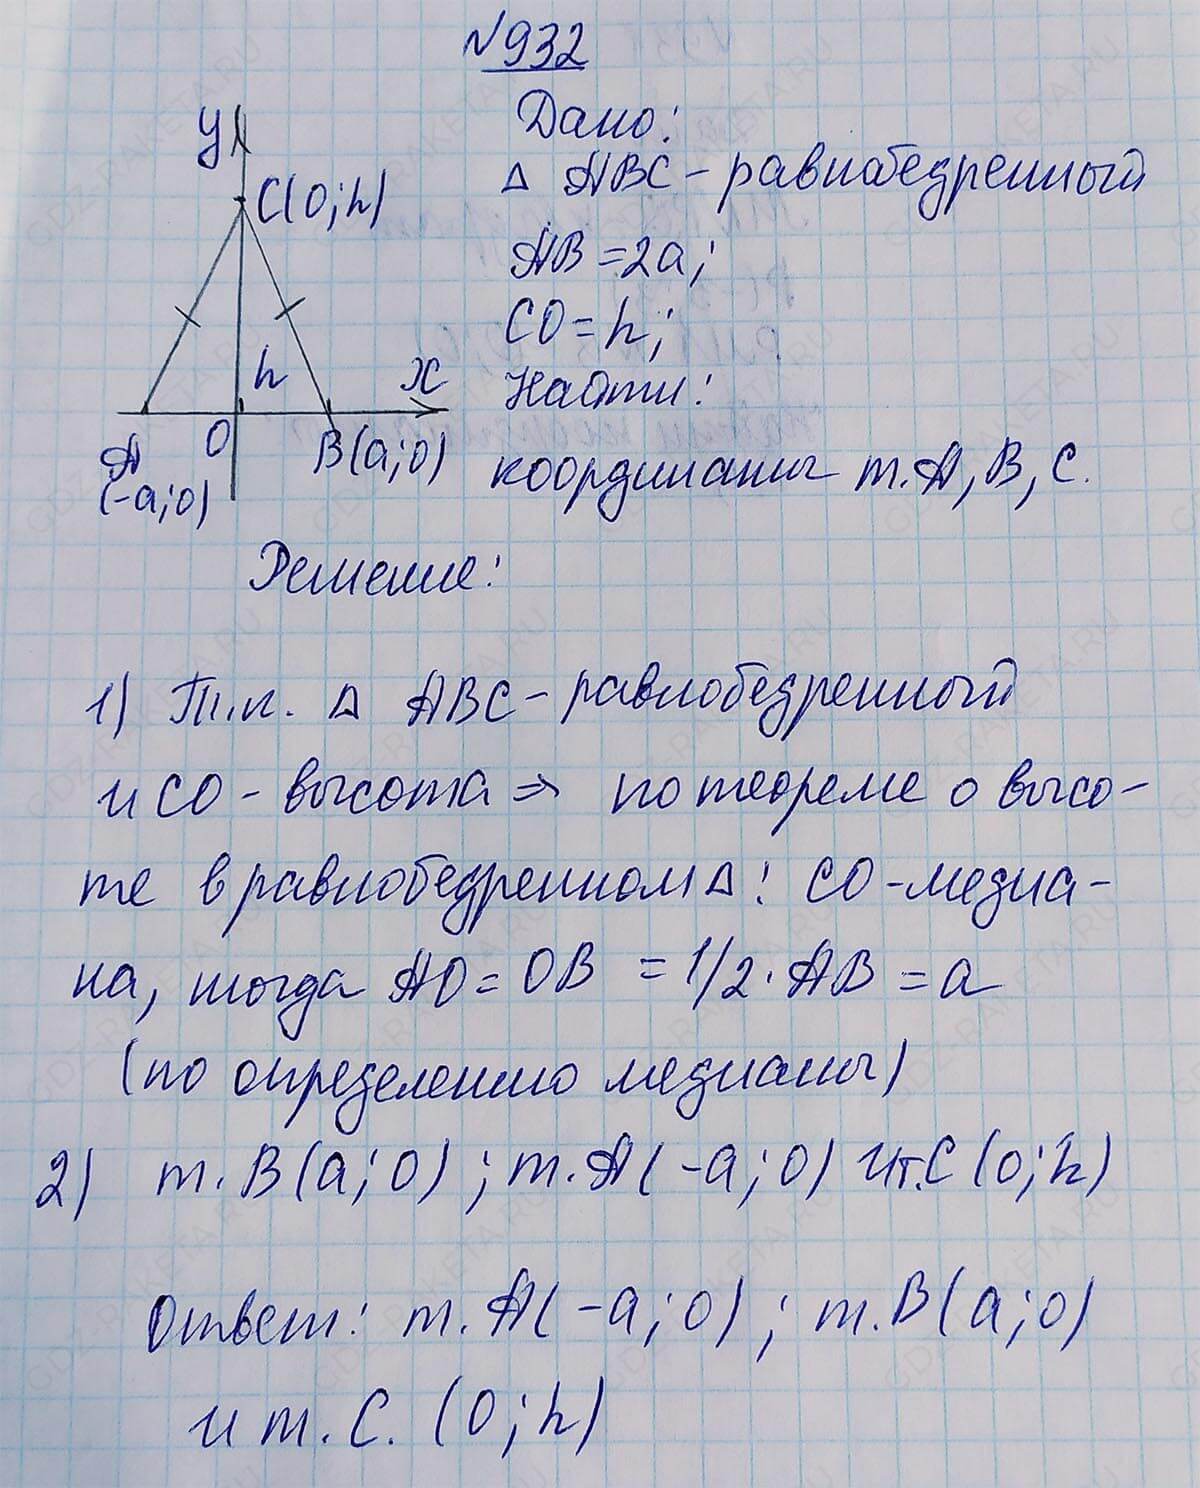 №932
Дано:
Δ ABC - равнобедренный
AB = 2a;
CO = h;
Найти:
координаты т. A, B, C.
y
C(0;h)
h
x
O
A
(-a;0)
B(a;0)
Решение:
1) Т.к. Δ ABC - равнобедренный
и CO - высота ⇒ по теореме о высо-
те в равнобедренном Δ: CO - медиа-
на, тогда AO = OB = 1/2 · AB = a
(по определению медианы)
2) т. B(a;0); т. A(-a;0) и т. C(0;h)
Ответ: т. A(-a;0); т. B(a;0)
и т. C. (0;h)
GDZ-RAKETA.RU